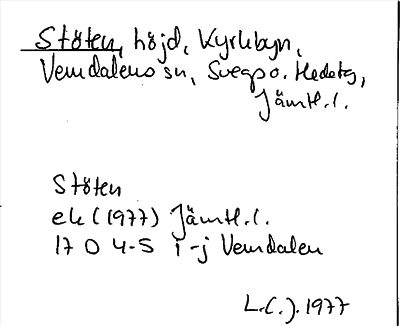 Stöten, höjd, Kyrkbyn,
Vemdalens sn, Svegs o. Hedebg,
Jämtl. l.
Stöten
ek (1977) Jämtl. l.
17 D 4-5 i-j Vemdalen
L.C.J. 1977